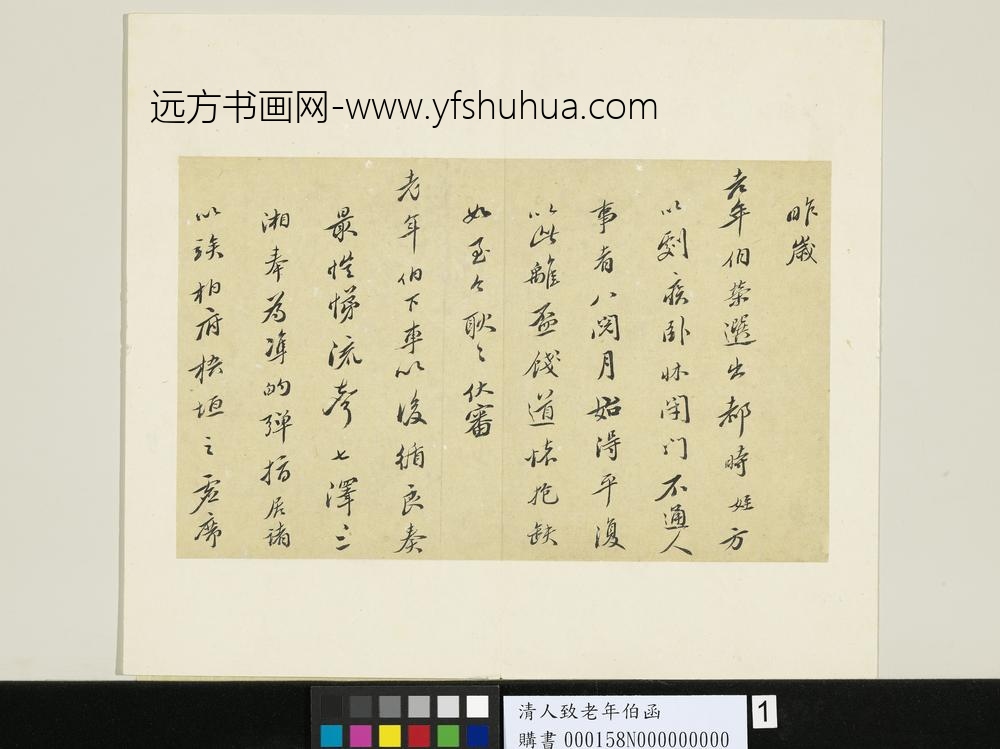 远方书画网-www.yfshuhua.com
昨歲
老年伯榮選出都時姪方
以劇疾臥牀閉门不通人
事者八閱月始得平復
以此離盃餞道悵抱缺
如至今耿〻伏審
老年伯下車以後循良奏
最愷悌流聲七澤三
湘奉為準的彈指居諸
以族柏府梧垣之虛席
清人致老年伯函
購書 000158N000000000
1